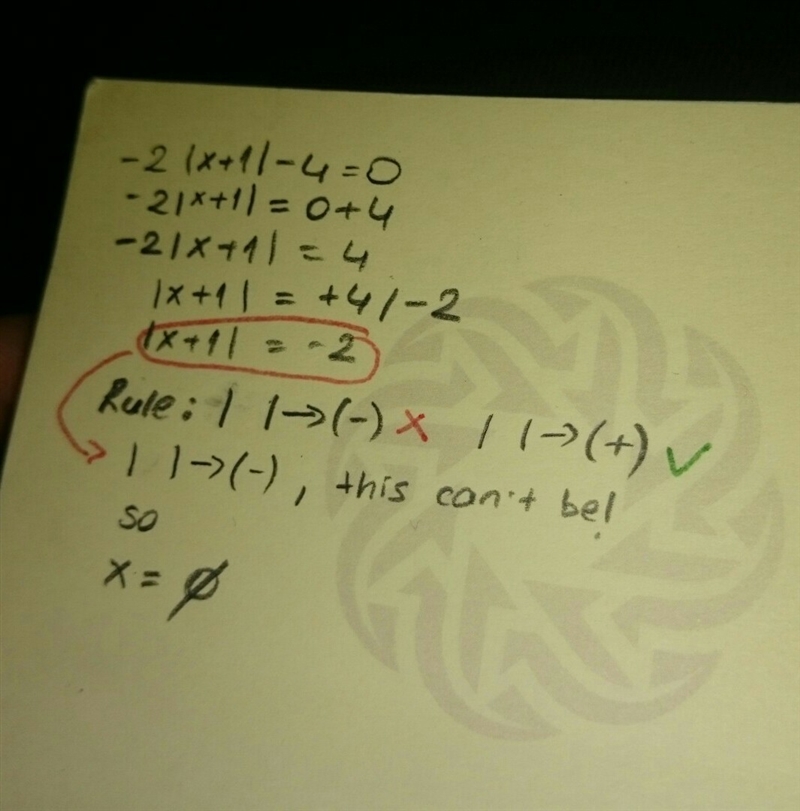 -2 |x+1| - 4 = 0
-2|x+1| = 0+4
-2|x+1| = 4
|x+1| = +4 / -2
|x+1| = -2
Rule: | |→(-) X | |→(+) ✓
| |→(-), this can't be!
so
x = ∅